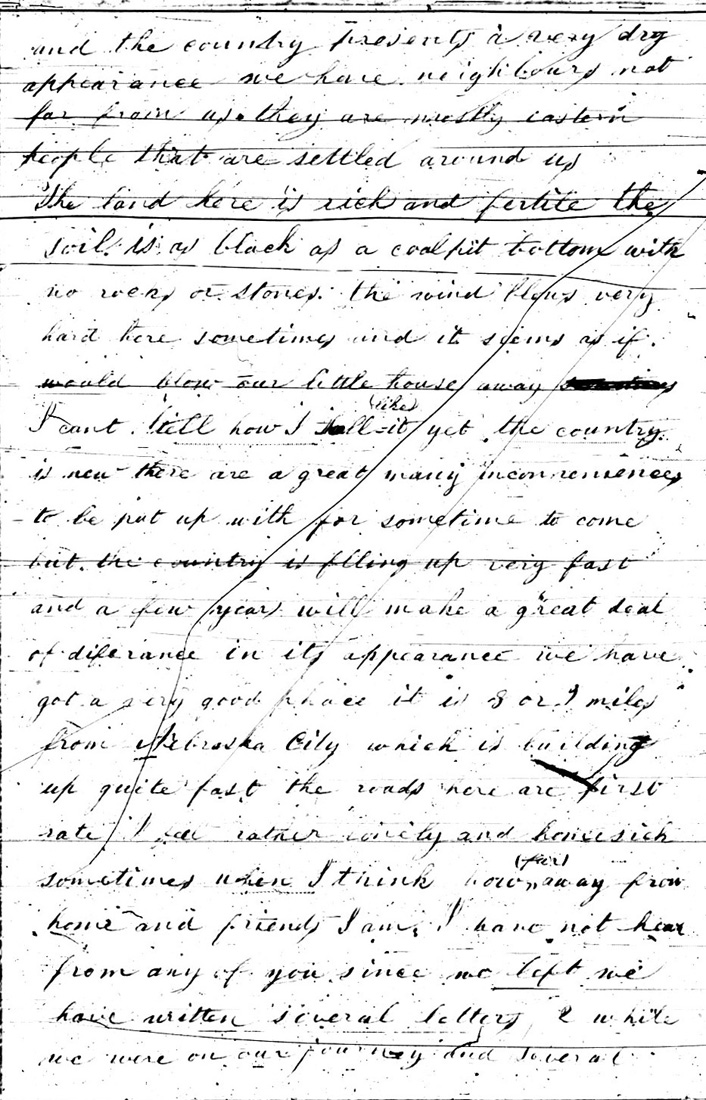 and the country presents a very dry
appearance we have neighbours not
far from us. they are mostly eastern
people that are settled around us
The land here is rich and fertile the
soil is as black as a coalpit bottom with
no rocks or stones. the wind blows very
hard here sometimes and it seems as if
would blow our little house away
I cant tell how I shall (like) it yet the country
is new there are a great many inconveniences
to be put up with for sometime to come
but the country is filling up very fast
and a few years will make a great deal
of diferance in its appearance we have
got a very good place it is 8 or 9 miles
from Nebraska City which is building
up quite fast the roads here are first
rate I feel rather lonely and homesick
sometimes when I think how (far) away from
home and friends I am. I have not hear
from any of you since we left we
have written several letters, 2 while
we were on our journey and several